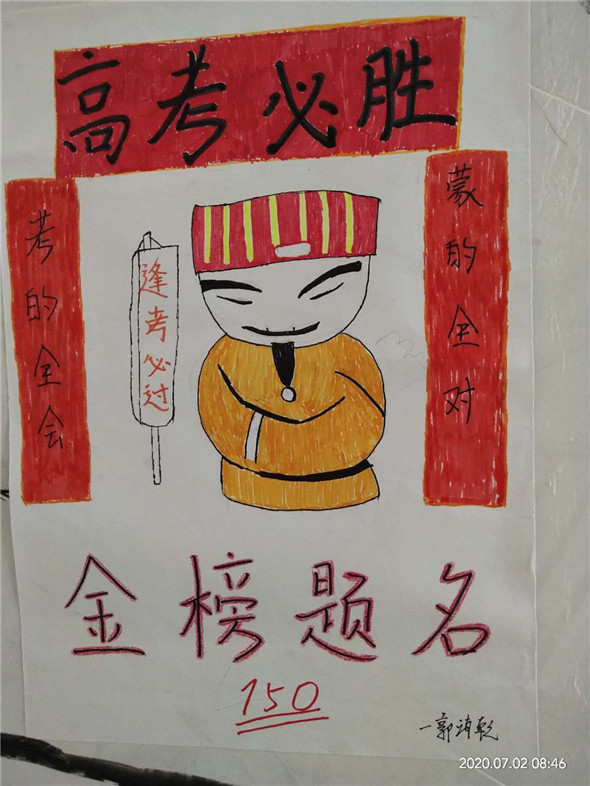 高考必胜
考的全会
逢考必过
蒙的全对
金榜题名
150
2020.07.02 08:46